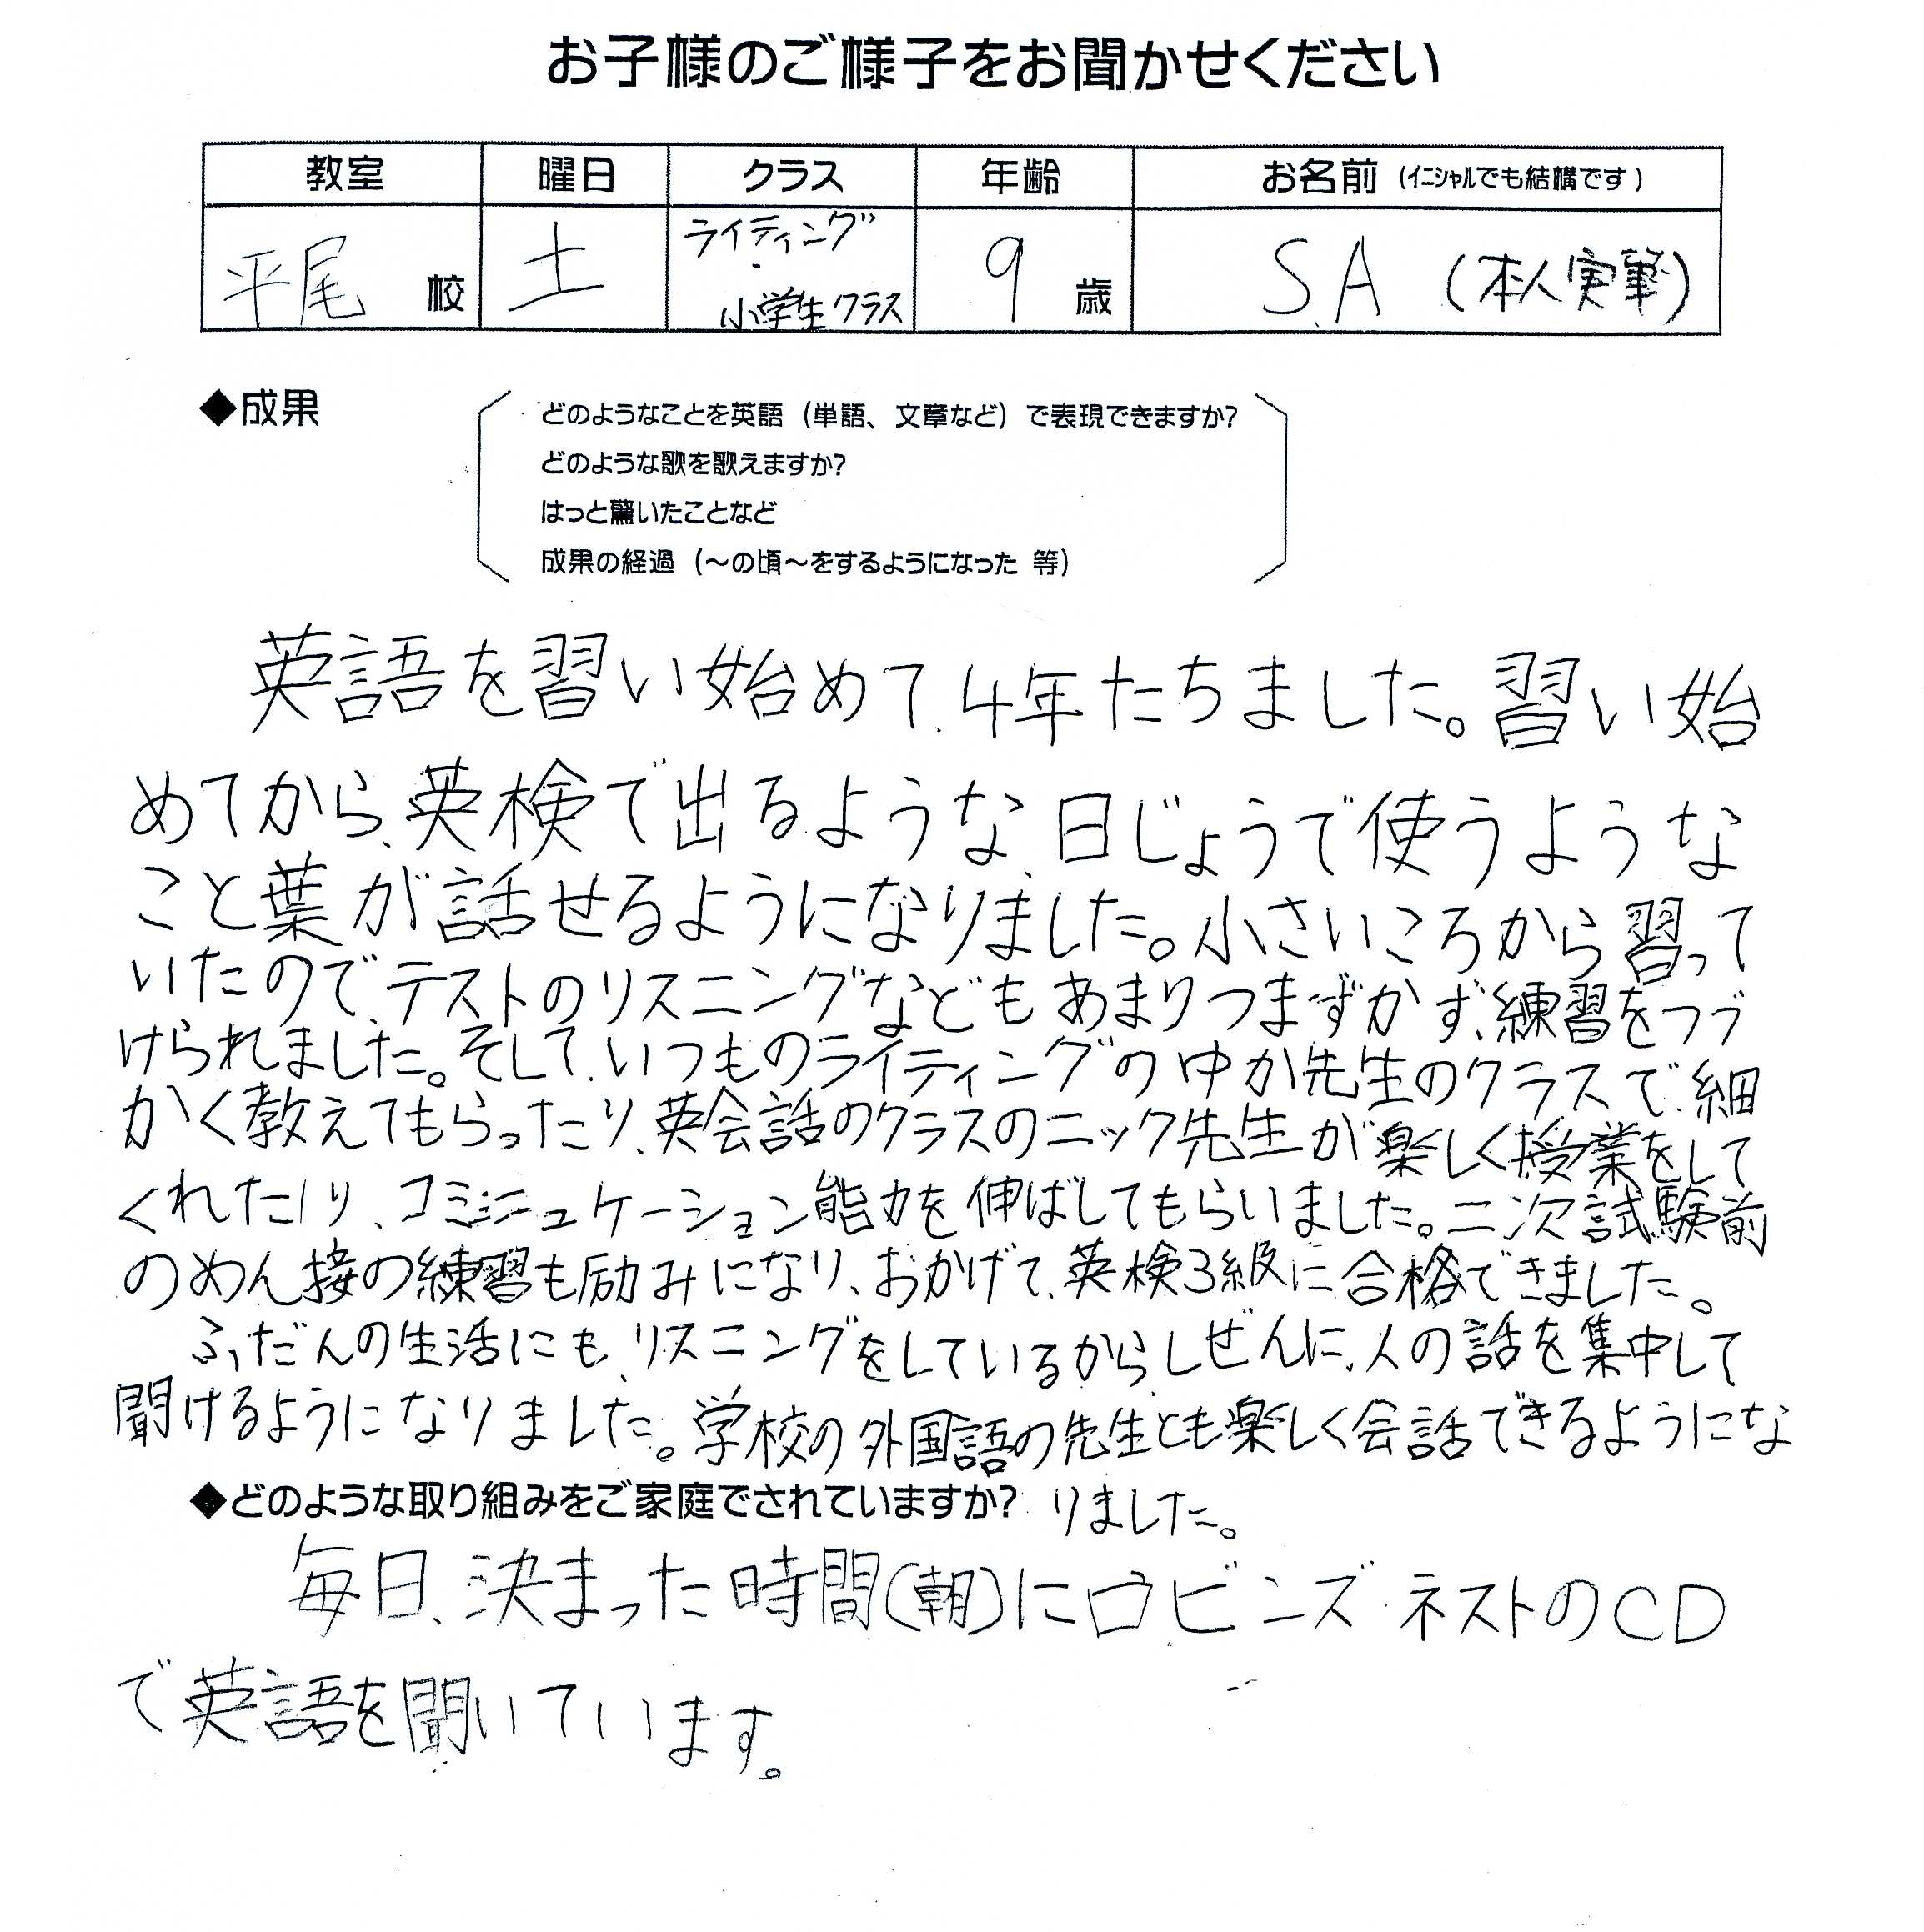 お子様のご様子をお聞かせください
教室 曜日 クラス 年齢 お名前 (イニシャルでも結構です)
平尾 校 土 ライティング・小学生クラス 9 歳 S.A (本人実筆)
◆成果
どのようなことを英語（単語、文章など）で表現できますか?
どのような歌を歌えますか?
はっと驚いたことなど
成果の経過（～の頃～をするようになった 等）
英語を習い始めて、4年たちました。習い始
めてから、英検で出るような、日じょうで使うような
こと葉が話せるようになりました。小さいころから習って
いたので、テストのリスニングなどもあまりつまずかず、練習をつづ
けられました。そして、いつものライティングのゆか先生のクラスで、細
かく教えてもらったり、英会話のクラスのニック先生が楽しく授業をして
くれたり、コミニュケーション能力を伸ばしてもらいました。二次試験前
のめん接の練習も励みになり、おかげで、英検3級に合格できました。
ふだんの生活にも、リスニングをしているから、しぜんに、人の話を集中して
聞けるようになりました。学校の外国語の先生とも楽しく会話できるようにな
りました。
◆どのような取り組みをご家庭でされていますか?
毎日、決まった時間(朝)にロビンズ ネストのCD
で英語を聞いています。